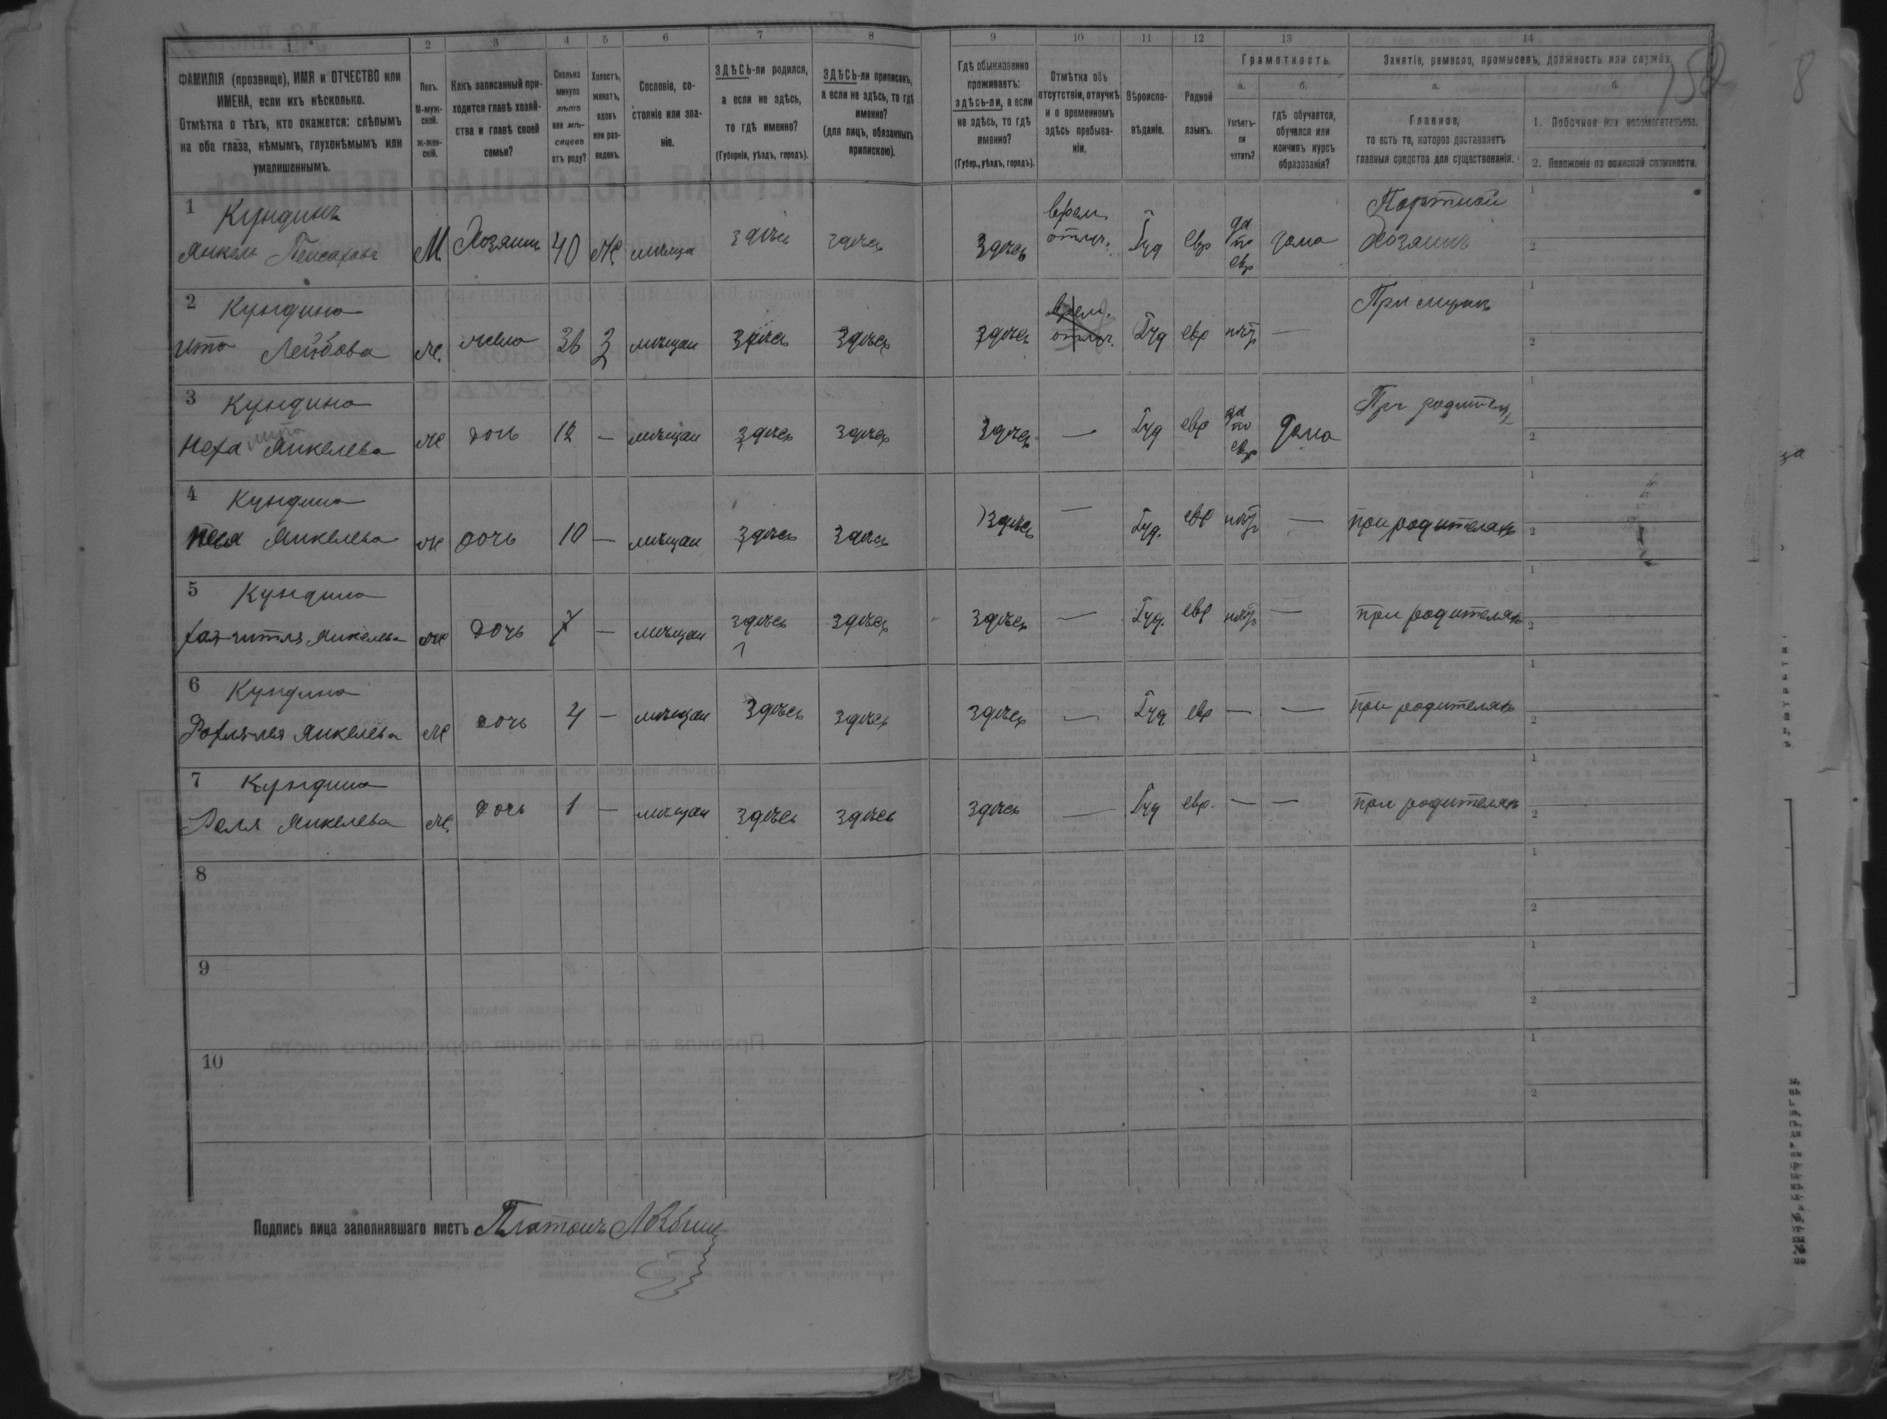 1 2 3 4 5 6 7 8 9 10 11 12 13 14
ФАМИЛІЯ (прозвище), ИМЯ и ОТЧЕСТВО или
ИМЕНА, если ихъ нѣсколько.
Отмѣтка о тѣхъ, кто окажется: слѣпымъ
на оба глаза, нѣмымъ, глухонѣмымъ или
умалишеннымъ.
Полъ.
М-муж-
ской.
Ж-жен-
скій.
Какъ записанный при-
ходится главѣ хозяй-
ства и главѣ своей
семьи?
Сколько
минуло
лѣтъ
или мѣ-
сяцевъ
отъ роду?
Холостъ,
женатъ,
вдовъ
или раз-
веденъ.
Сословіе, со-
стояніе или зва-
ніе.
ЗДѢСЬ-ли родился,
а если не здѣсь,
то гдѣ именно?
(Губернія, уѣздъ, городъ).
ЗДѢСЬ-ли приписанъ,
а если не здѣсь, то гдѣ
именно?
(для лицъ, обязанныхъ
припискою).
Гдѣ обыкновенно
проживаетъ:
здѣсь-ли, а если
не здѣсь, то гдѣ
именно?
(Губер., уѣздъ, городъ).
Отмѣтка объ
отсутствіи, отлучкѣ
и о временномъ
здѣсь пребыва-
ніи.
Вѣроиспо-
вѣданіе.
Родной
языкъ.
Грамотность.
а.
Умѣетъ-
ли
читать?
б.
гдѣ обучается,
обучался или
кончилъ курсъ
образованія?
Занятіе, ремесло, промыселъ, должность или служба.
а.
Главное,
то есть то, которое доставляетъ
главныя средства для существованія.
б.
1. Побочное или вспомогательное.
2. Положеніе по воинской повинности.
8
1 Кундинъ
Янкель Пейсаховъ М Хозяинъ 40 Ж здѣсь здѣсь здѣсь врем. отлуч. Іуд евр да по евр дома Портной хозяинъ
2 Кундина
Ита Лейбова Ж. жена 36 З мѣщан здѣсь здѣсь здѣсь врем. отлуч. Іуд евр нѣтъ — При мужѣ
3 Кундина
Неха Янкелева Ж дочь 12 — мѣщан здѣсь здѣсь здѣсь — Іуд евр да по евр дома При родителях
4 Кундина
Песя Янкелева Ж дочь 10 — мѣщан здѣсь здѣсь здѣсь — Іуд. евр нѣтъ — при родителяхъ
5 Кундина
Янкелева Ж дочь 7 — мѣщан здѣсь здѣсь здѣсь — Іуд. евр нѣтъ — при родителяхъ
6 Кундина
Янкелева Ж дочь 4 — мѣщан здѣсь здѣсь здѣсь — Іуд евр — — при родителяхъ
7 Кундина
Янкелева Ж. дочь 1 — мѣщан здѣсь здѣсь здѣсь — Іуд евр. — — при родителяхъ
8
9
10
Подпись лица заполнявшаго листъ Платонъ